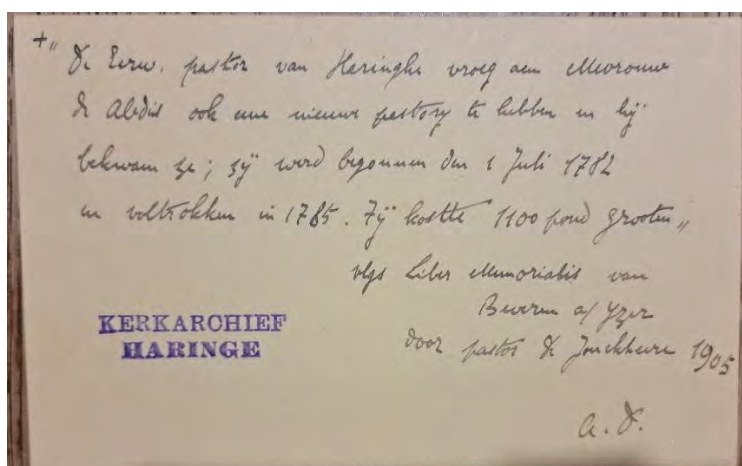 + „ De Eerw. pastor van Haringhe vroeg aen Mevrouw
de Abdis ook eene nieuwe pastory te hebben en hij
bekwam ze ; zÿ werd begonnen den 1 Juli 1782
en voltrokken in 1785. Zÿ kostte 1100 pond grooten „
vlgs Liber Memorialis van
Beveren a/ Yzer
door pastor De Jonckheere 1905
KERKARCHIEF
HARINGE
a. D.